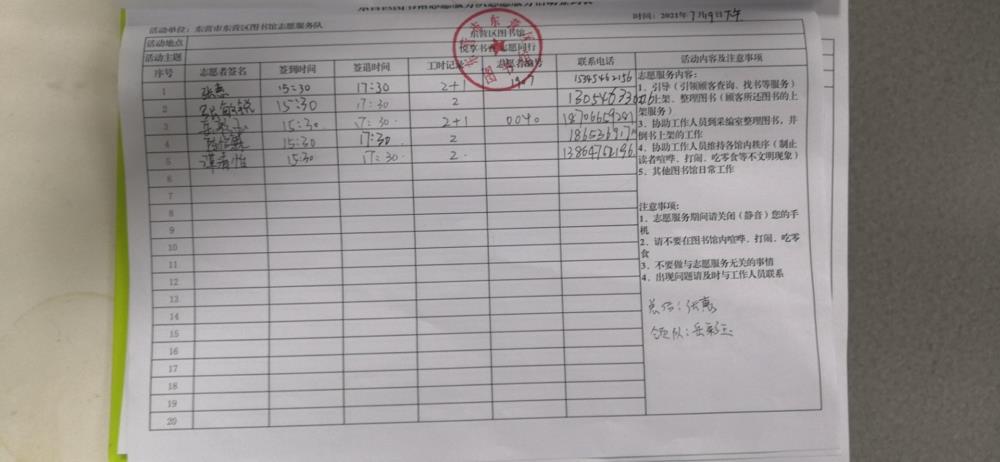 活动单位：东营市东营区图书馆志愿服务队 时间：2021年7月19日下午
活动地点 东营区图书馆
活动主题 悦享书香 志愿同行
序号 志愿者签名 签到时间 签退时间 工时记录 志愿者编号 联系电话 活动内容及注意事项
1 张惠 15:30 17:30 2+1 15345462156
2 15:30 17:30 2
3 15:30 17:30 2+1 0040 18706659281
4 15:30 17:30 2
5 15:30 17:30 2 13864762196
6
7
8
9
10
11
12
13
14
15
16
17
18
19
20
志愿服务内容：
1、引导（引领顾客查询、找书等服务）
上架、整理图书（顾客所还图书的上
架服务）
3、协助工作人员到采编室整理图书，并
例书上架的工作
4、协助工作人员维持各馆内秩序（制止
读者喧哗、打闹、吃零食等不文明现象）
5、其他图书馆日常工作
注意事项：
1、志愿服务期间请关闭（静音）您的手
机
2、请不要在图书馆内喧哗、打闹、吃零
食
3、不要做与志愿服务无关的事情
4、出现问题请及时与工作人员联系
总结：张惠
领队：岳彩玉